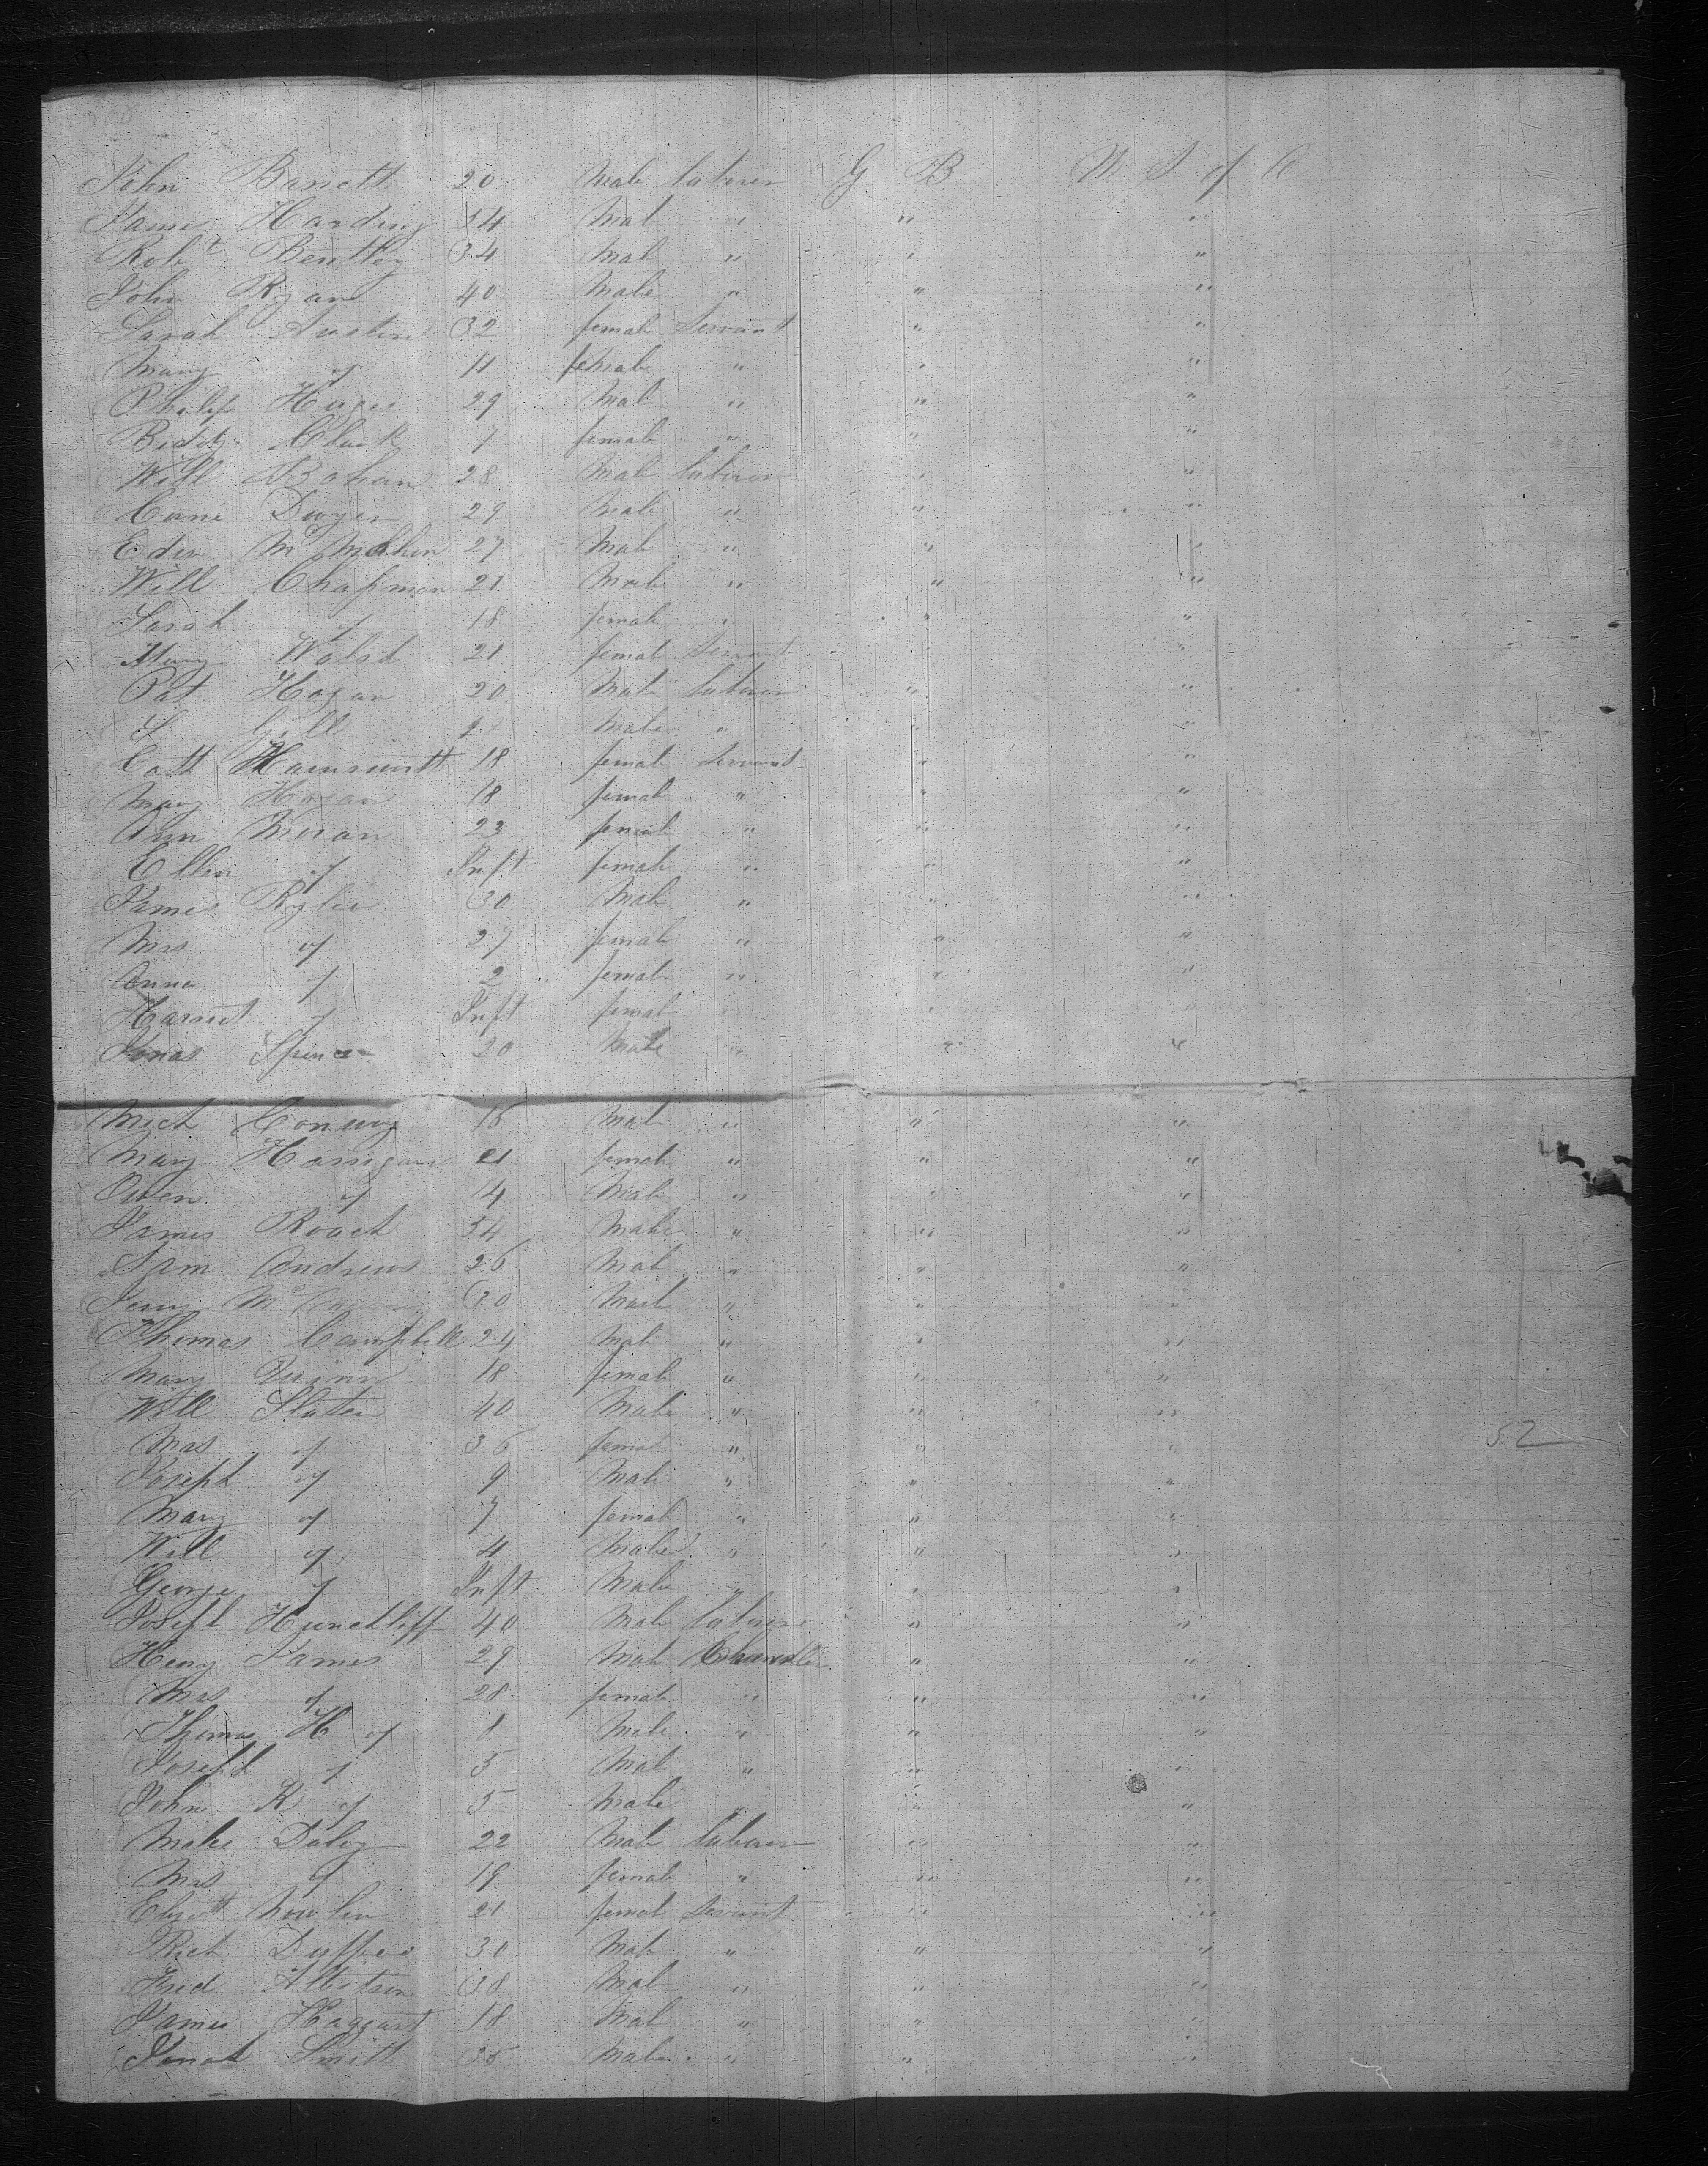 John Barrett 20 Male laborer G B U S of A
James Harding 54 Mal " " "
Robt Bentley 34 Mal " " "
John Ryan 40 Male " " "
Sarah Austin 32 female Servant " "
Mary " 11 female " " "
Philip Huges 29 Mal " " "
Bidy Clark 7 female " " "
Will Bohan 28 Male laborer " "
Dwyer 29 Male " " "
McMahon 27 Mal " " "
Will Chapman 21 Male " " "
Sarah " 18 female " " "
Mary Walsh 21 femal Servant " "
Pat Hogan 20 Male laborer " "
Gill Male " " "
Cath 18 femal Servant " "
Mary Hogan 18 femal " " "
Ann Moran 23 female " " "
Ellen " Inft female " " "
James Rylie 30 Male " " "
Mrs " 27 femal " " "
Anna " 2 femal " " "
Harriet " Inft femal " " "
Jonas Spencer 20 Male " " "
Mich Conway 18 Mal " " "
Mary Harrigan 21 femal " " "
Owen " 14 Male " " "
James Roach 34 Male " " "
Sam Andrews 26 Mal " " "
30 Male " " "
Thomas Campbell 24 Male " " "
Mary Quinn 18 female " " "
Will Slater 40 Male " " "
Mrs " 36 femal " " " 52
Joseph " 9 Male " " "
Mary " 7 femal " " "
Will " 4 Male " " "
George " Inft Male " " "
Joseph Hunchliff 40 Male laborer " "
Henry James 29 Male Chandler " "
Mrs " 28 female " " "
Thomas H " 8 Male " " "
Joseph " 5 Mal " " "
John R " 5 Male " " "
Mike Daley 22 Male laborer " "
Mrs " 19 female " " "
Nowlan 21 femal Servant " "
Rich 30 Male " " "
Fred 38 Mal " " "
James Haggart 18 Mal " " "
Smith 35 Male " " "